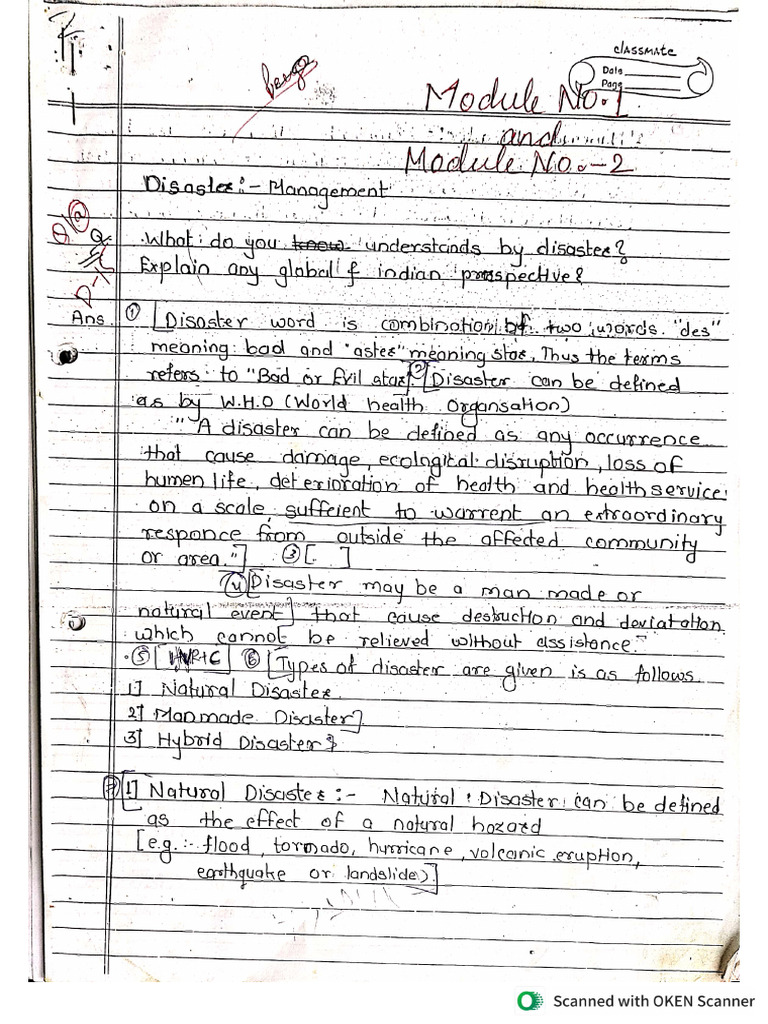 classmate
Date
Page
Module No. 1
and
Module No. - 2
Disaster :- Management
Q. What do you know understands by disaster?
Explain any global & indian prospective?
Ans. ① [Disaster word is combination of two words "des"
meaning bad and "aster" meaning star, Thus the terms
refers to "Bad or Evil star] ② [Disaster can be defined
as by W.H.O (World health Organsation)
"A disaster can be defined as any occurrence
that cause damage, ecological disruption, loss of
human life, deterioration of health and health service
on a scale, sufficient to warrent an extraordinary
responce from outside the affected community
or area."] ③ [ ]
④ [Disaster may be a man made or
natural event] that cause destruction and deviatation
which cannot be relieved without assistance."
⑤ [ ] ⑥ [Types of disaster are given is as follows
1] Natural Disaster
2] Manmade Disaster].
3] Hybrid Disaster
⑦ [1] Natural Disaster :- Natural Disaster can be defined
as the effect of a natural hazard
[e.g.:- flood, tornado, hurricane, volcanic eruption,
earthquake or landslide).]
Scanned with OKEN Scanner